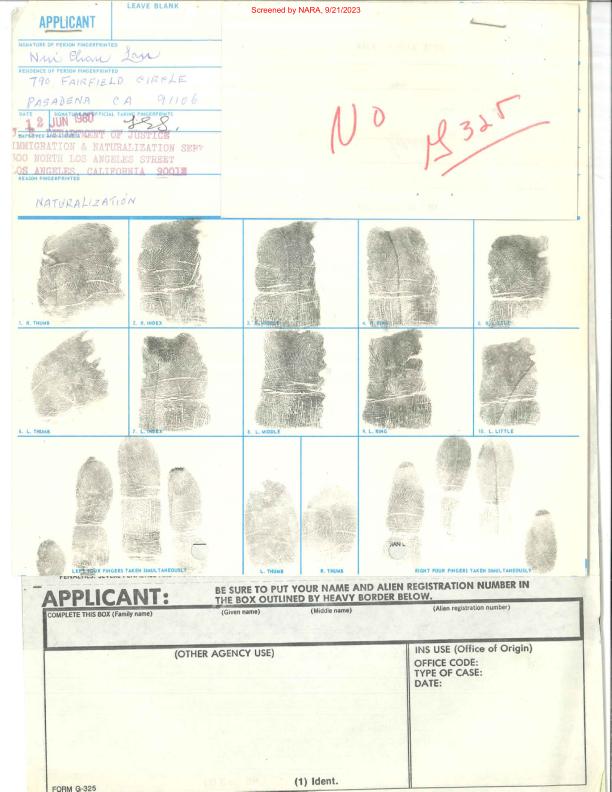 Screened by NARA, 9/21/2023
LEAVE BLANK
APPLICANT
SIGNATURE OF PERSON FINGERPRINTED
RESIDENCE OF PERSON FINGERPRINTED
790 FAIRFIELD CIRCLE
PASADENA CA 91106
DATE
SIGNATURE OF OFFICIAL TAKING FINGERPRINTS
12 JUN 1980
DEPARTMENT OF JUSTICE
IMMIGRATION & NATURALIZATION SERV
300 NORTH LOS ANGELES STREET
LOS ANGELES, CALIFORNIA 90012
REASON FINGERPRINTED
NATURALIZATION
NO G325
1. R. THUMB
2. R. INDEX
3. R. MIDDLE
4. R. RING
5. R. LITTLE
6. L. THUMB
7. L. INDEX
8. L. MIDDLE
9. L. RING
10. L. LITTLE
LEFT FOUR FINGERS TAKEN SIMULTANEOUSLY
L. THUMB
R. THUMB
RIGHT FOUR FINGERS TAKEN SIMULTANEOUSLY
APPLICANT:
BE SURE TO PUT YOUR NAME AND ALIEN REGISTRATION NUMBER IN
THE BOX OUTLINED BY HEAVY BORDER BELOW.
COMPLETE THIS BOX (Family name)
(Given name)
(Middle name)
(Alien registration number)
(OTHER AGENCY USE)
INS USE (Office of Origin)
OFFICE CODE:
TYPE OF CASE:
DATE:
(1) Ident.
FORM G-325